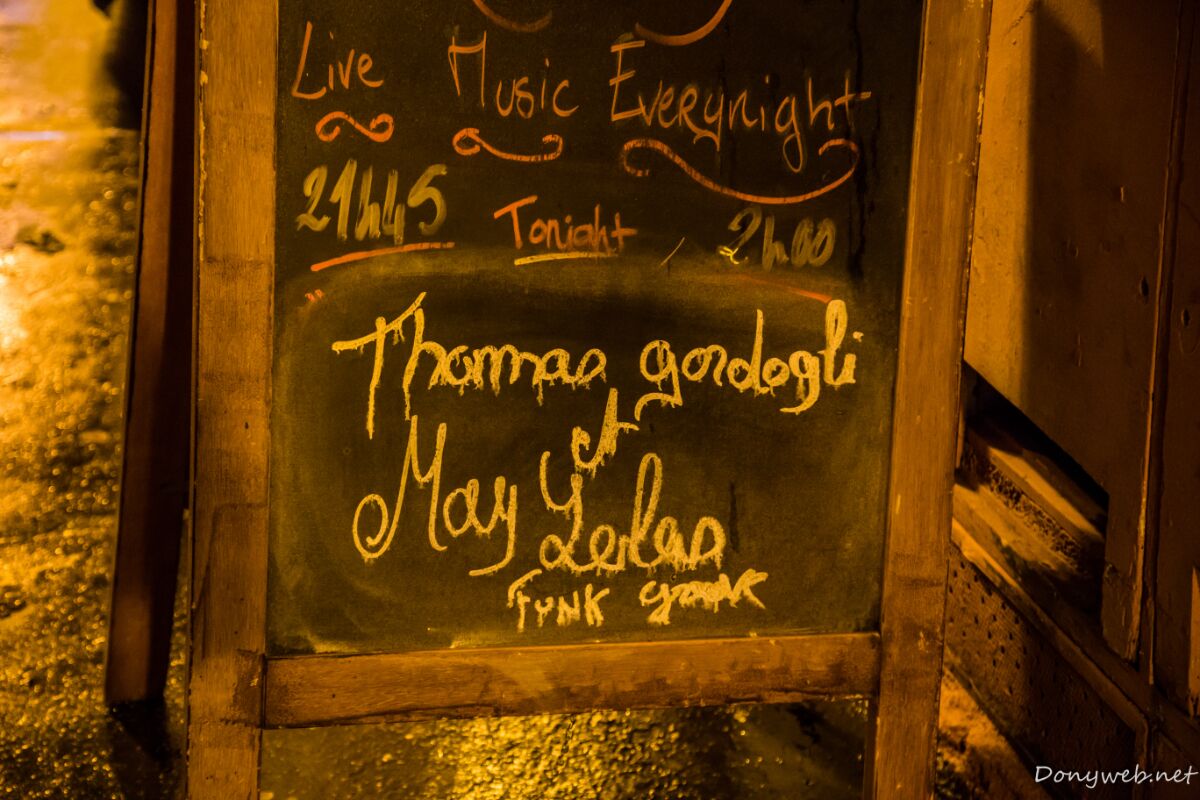 Live Music Everynight
21h45 Tonight 2h00
Thomas gordogli
May
Funk
Donyweb.net